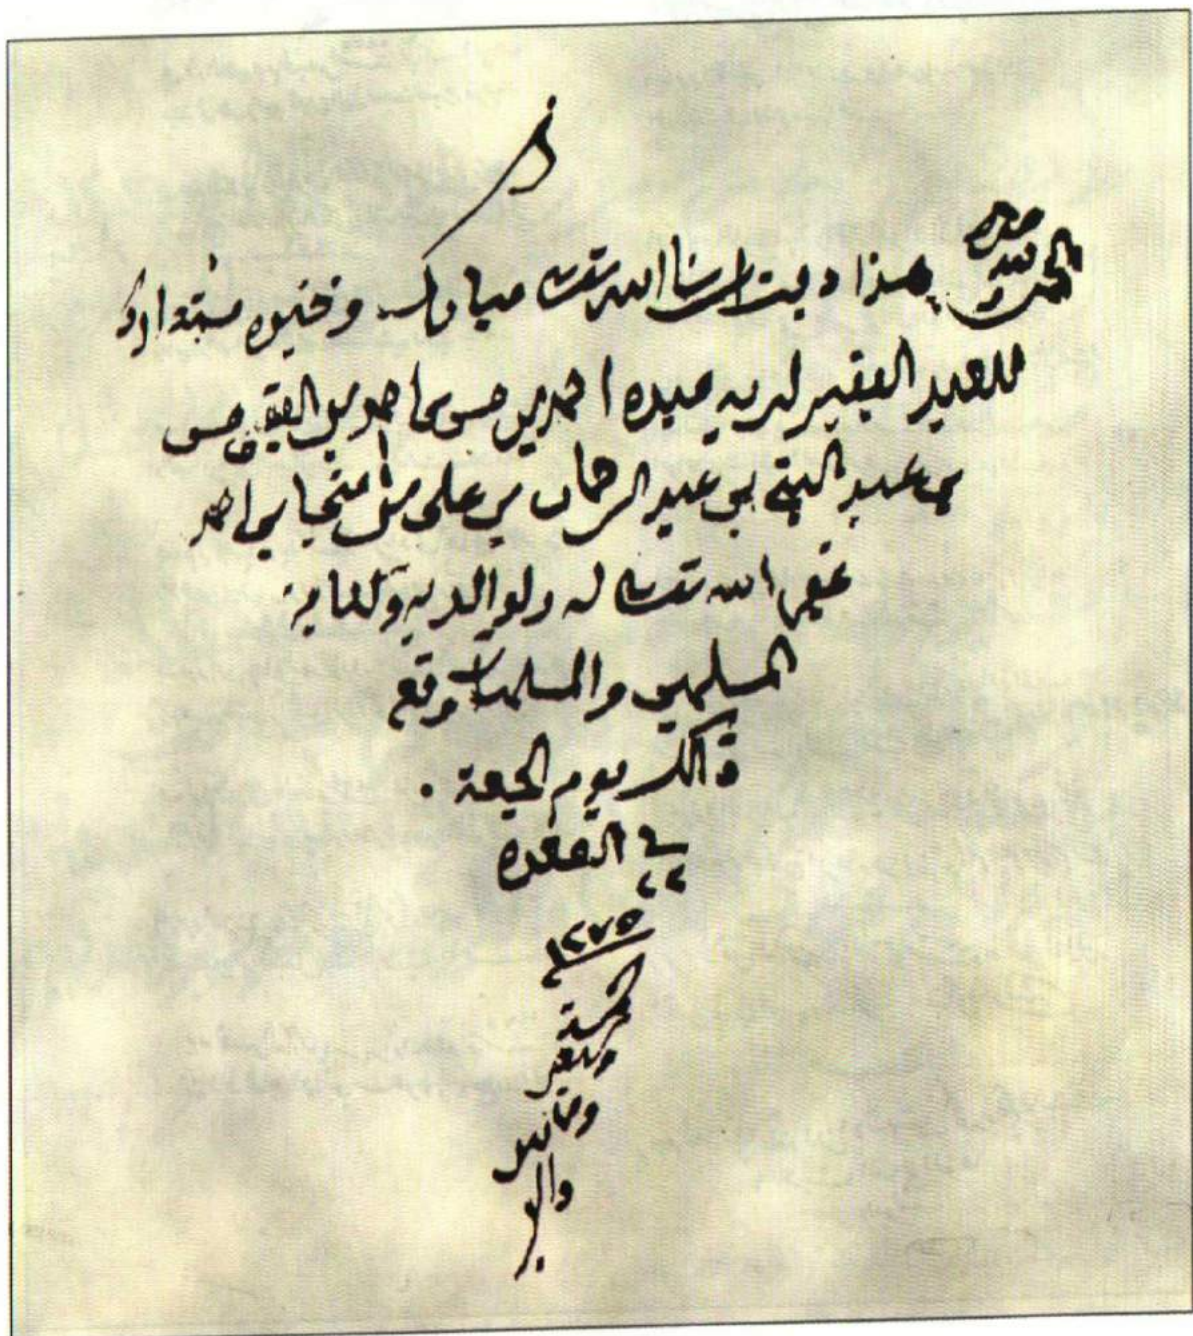 الحمد لله وحده
هذا دفتر إن شاء الله تعالى مبارك وذخيره
للعبد الفقير لربه عبده احمد بن حسن بن احمد بن الفقيه حسن
بن عبد النبي بن عبد الرحمان بن علي بن احمد
غفر الله تعالى له ولوالديه ولكافة
المسلمين والمسلمات وقع
ذالك يوم الجمعة .
في القعده
٢٢
١٢٧٥
خمسة
وسبعين
ومائتين
والف